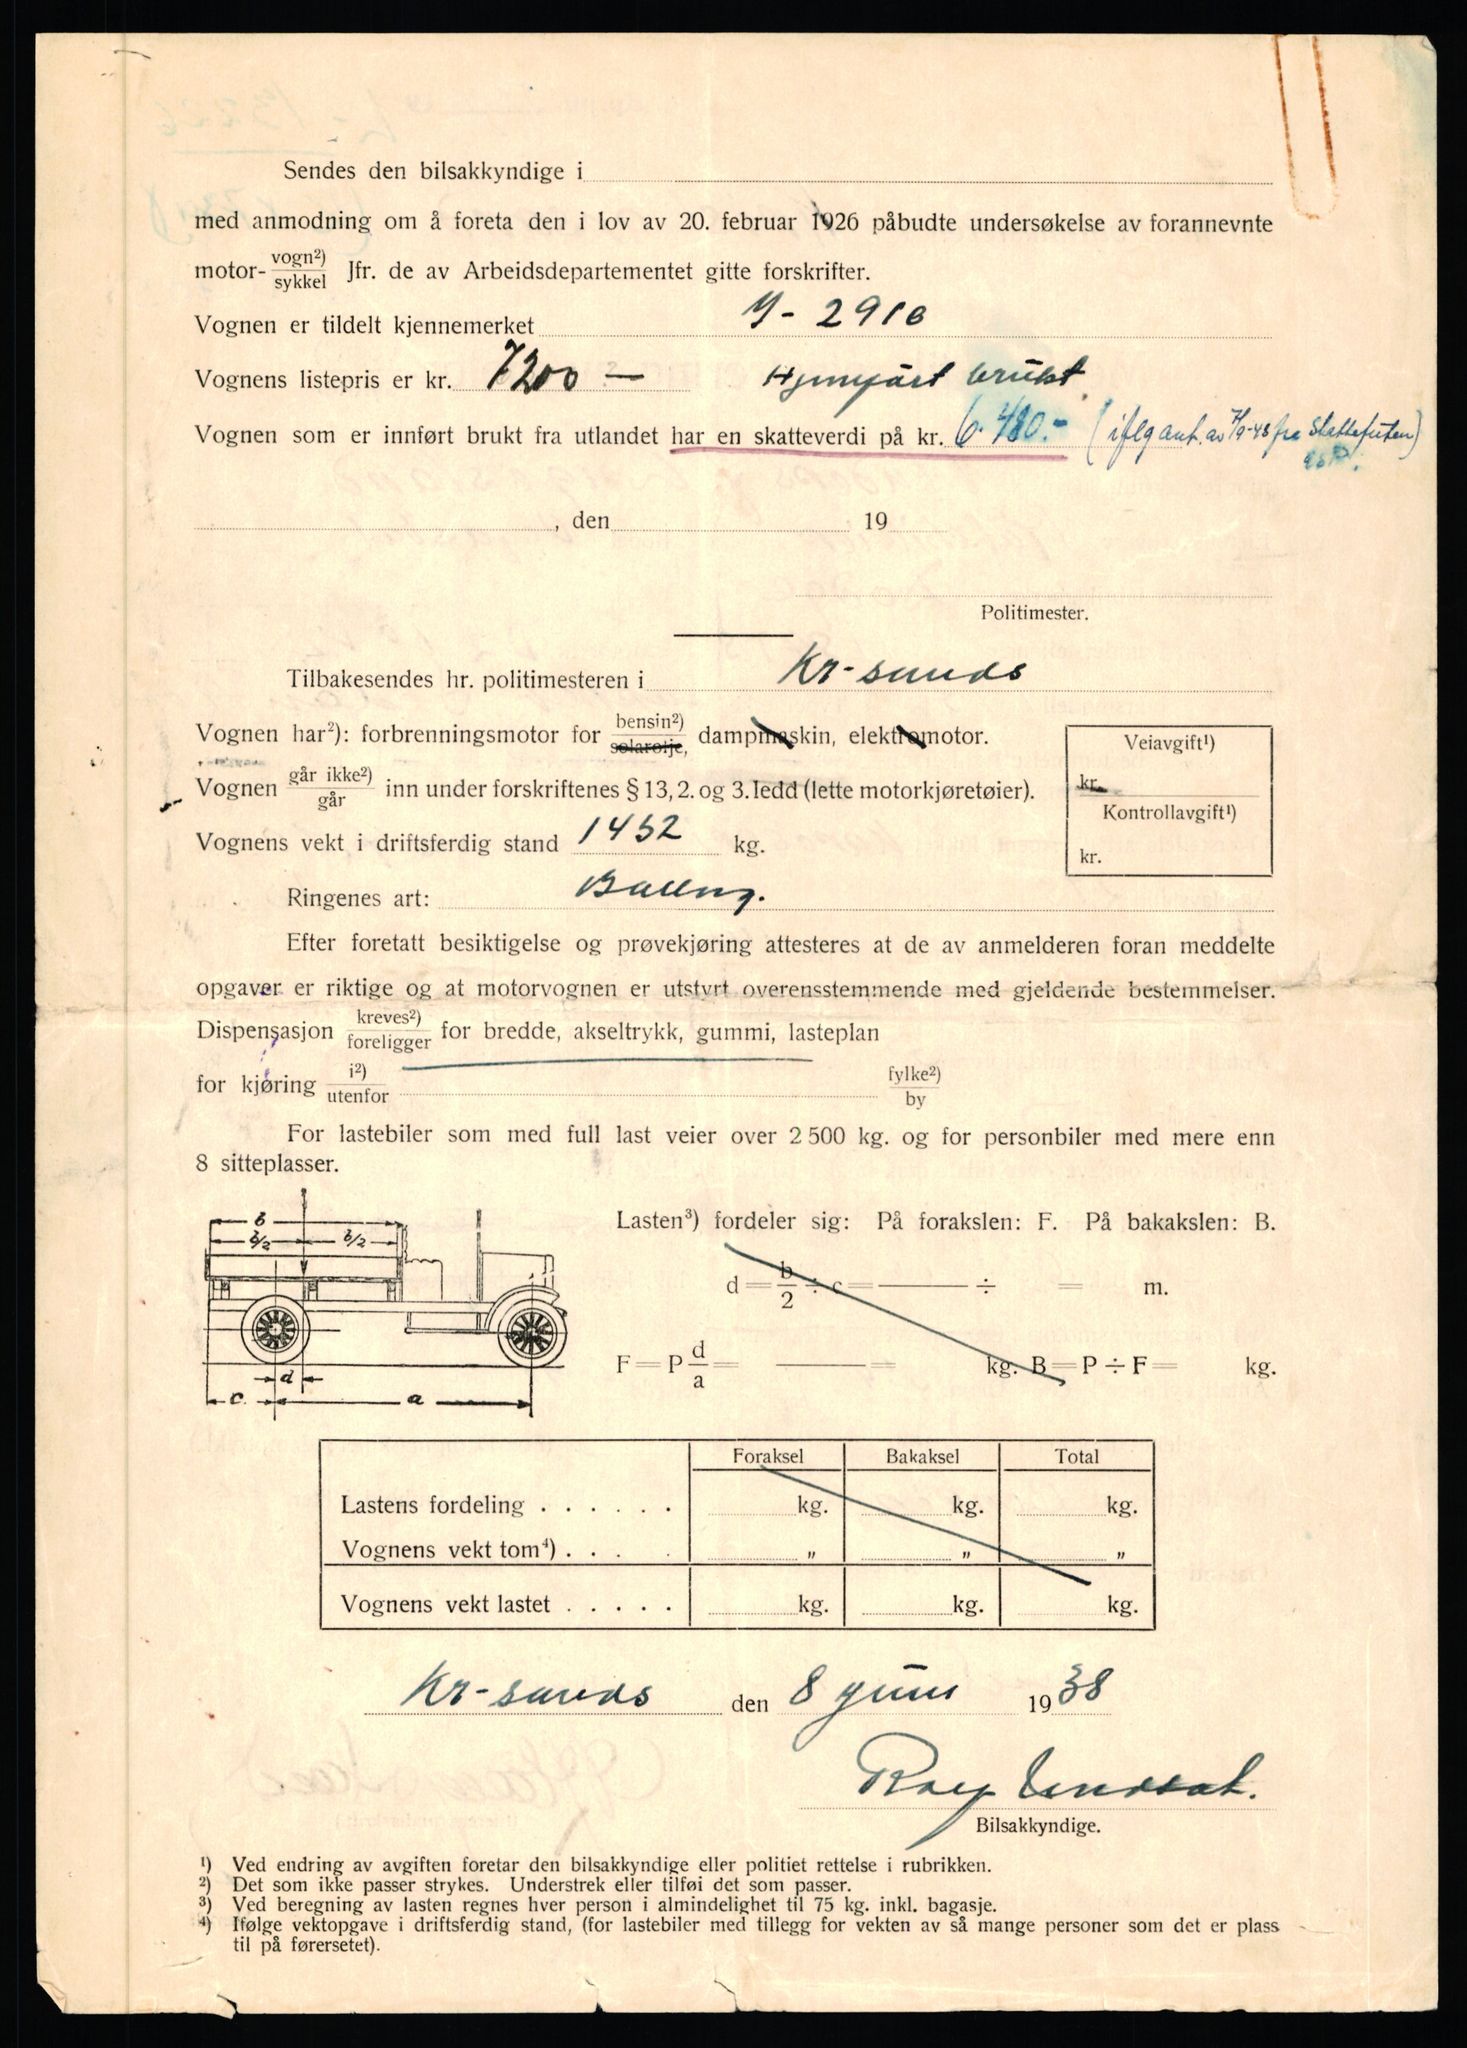 Sendes den bilsakkyndige i
med anmodning om å foreta den i lov av 20. februar 1926 påbudte undersøkelse av forannevnte
motor- vogn²)/sykkel Jfr. de av Arbeidsdepartementet gitte forskrifter.
Vognen er tildelt kjennemerket Y- 2910
Vognens listepris er kr. 7200 — brukt
Vognen som er innført brukt fra utlandet har en skatteverdi på kr. 6.480.- (iflg ant. av 7/9-48 fra Skattefuten)
, den 19
Politimester.
Tilbakesendes hr. politimesteren i Kr-sunds
Vognen har²): forbrenningsmotor for bensin²)/solarolje, dampmaskin, elektromotor.
Veiavgift¹)
kr.
Vognen går ikke²)/går inn under forskriftenes § 13, 2. og 3. ledd (lette motorkjøretøier).
Kontrollavgift¹)
kr.
Vognens vekt i driftsferdig stand 1452 kg.
Ringenes art: Ballng.
Efter foretatt besiktigelse og prøvekjøring attesteres at de av anmelderen foran meddelte
opgaver er riktige og at motorvognen er utstyrt overensstemmende med gjeldende bestemmelser.
Dispensasjon kreves²)/foreligger for bredde, akseltrykk, gummi, lasteplan
for kjøring i²)/utenfor fylke²)/by
For lastebiler som med full last veier over 2 500 kg. og for personbiler med mere enn
8 sitteplasser.
b
b/2 b/2
d
c a
Lasten³) fordeler sig: På forakslen: F. På bakakslen: B.
d = b/2 ÷ c = ——— ÷ = m.
F = P d/a = ——— = kg. B = P ÷ F = kg.
Foraksel Bakaksel Total
Lastens fordeling . . . . . . kg. kg. kg.
Vognens vekt tom⁴) . . . „ „ „
Vognens vekt lastet . . . . . kg. kg. kg.
Kr-sunds den 8 juni 1938
Bilsakkyndige.
¹) Ved endring av avgiften foretar den bilsakkyndige eller politiet rettelse i rubrikken.
²) Det som ikke passer strykes. Understrek eller tilføi det som passer.
³) Ved beregning av lasten regnes hver person i almindelighet til 75 kg. inkl. bagasje.
⁴) Ifølge vektopgave i driftsferdig stand, (for lastebiler med tillegg for vekten av så mange personer som det er plass
til på førersetet).